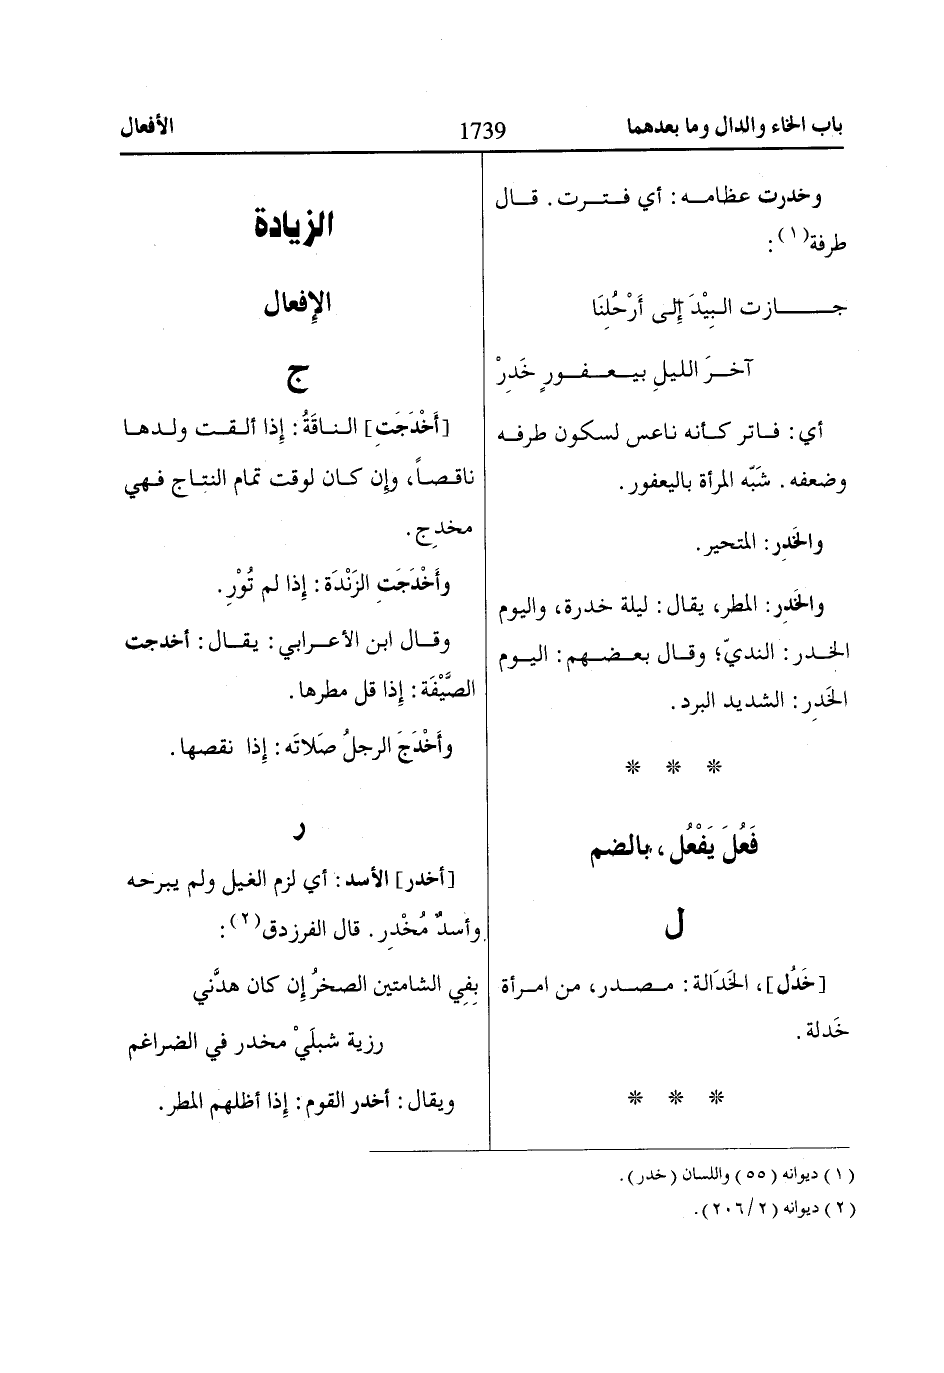 باب الخاء والدال وما بعدهما
1739
الأفعال
وخدرت عظامه: أي فترت. قال
طرفة(١):
جازت البِيْدَ إِلى أَرْحُلِنَا
آخرَ الليلِ بيعفورٍ خَدِرْ
أي: فاتر كأنه ناعس لسكون طرفه
وضعفه. شَبَّه المرأة باليعفور.
والخَدِر: المتحير.
والخَدِر: المطر، يقال: ليلة خدرة، واليوم
الخدر: النديّ؛ وقال بعضهم: اليوم
الخَدِر: الشديد البرد.
* * *
فَعُلَ يَفْعُل، بالضم
ل
[خَدُل]، الخَدَالة: مصدر، من امرأة
خَدلة.
* * *
الزيادة
الإِفعال
ج
[أَخْدَجَتِ] الناقَةُ: إِذا ألقت ولدها
ناقصاً، وإِن كان لوقت تمام النتاج فهي
مخدِج.
وأَخْدَجَتِ الزَنْدَة: إِذا لم تُوْرِ.
وقال ابن الأعرابي: يقال: أخدجت
الصَّيْفَة: إِذا قل مطرها.
وأَخْدَجَ الرجلُ صَلاتَه: إِذا نقصها.
ر
[أخدر] الأسد: أي لزم الغيل ولم يبرحه
وأسدٌ مُخْدِر. قال الفرزدق(٢):
بِفِي الشامتين الصخرُ إِن كان هدَّني
رزية شبلَيْ مخدر في الضراغم
ويقال: أخدر القوم: إِذا أظلهم المطر.
(١) ديوانه (٥٥) واللسان (خدر).
(٢) ديوانه (٢/ ٢٠٦).